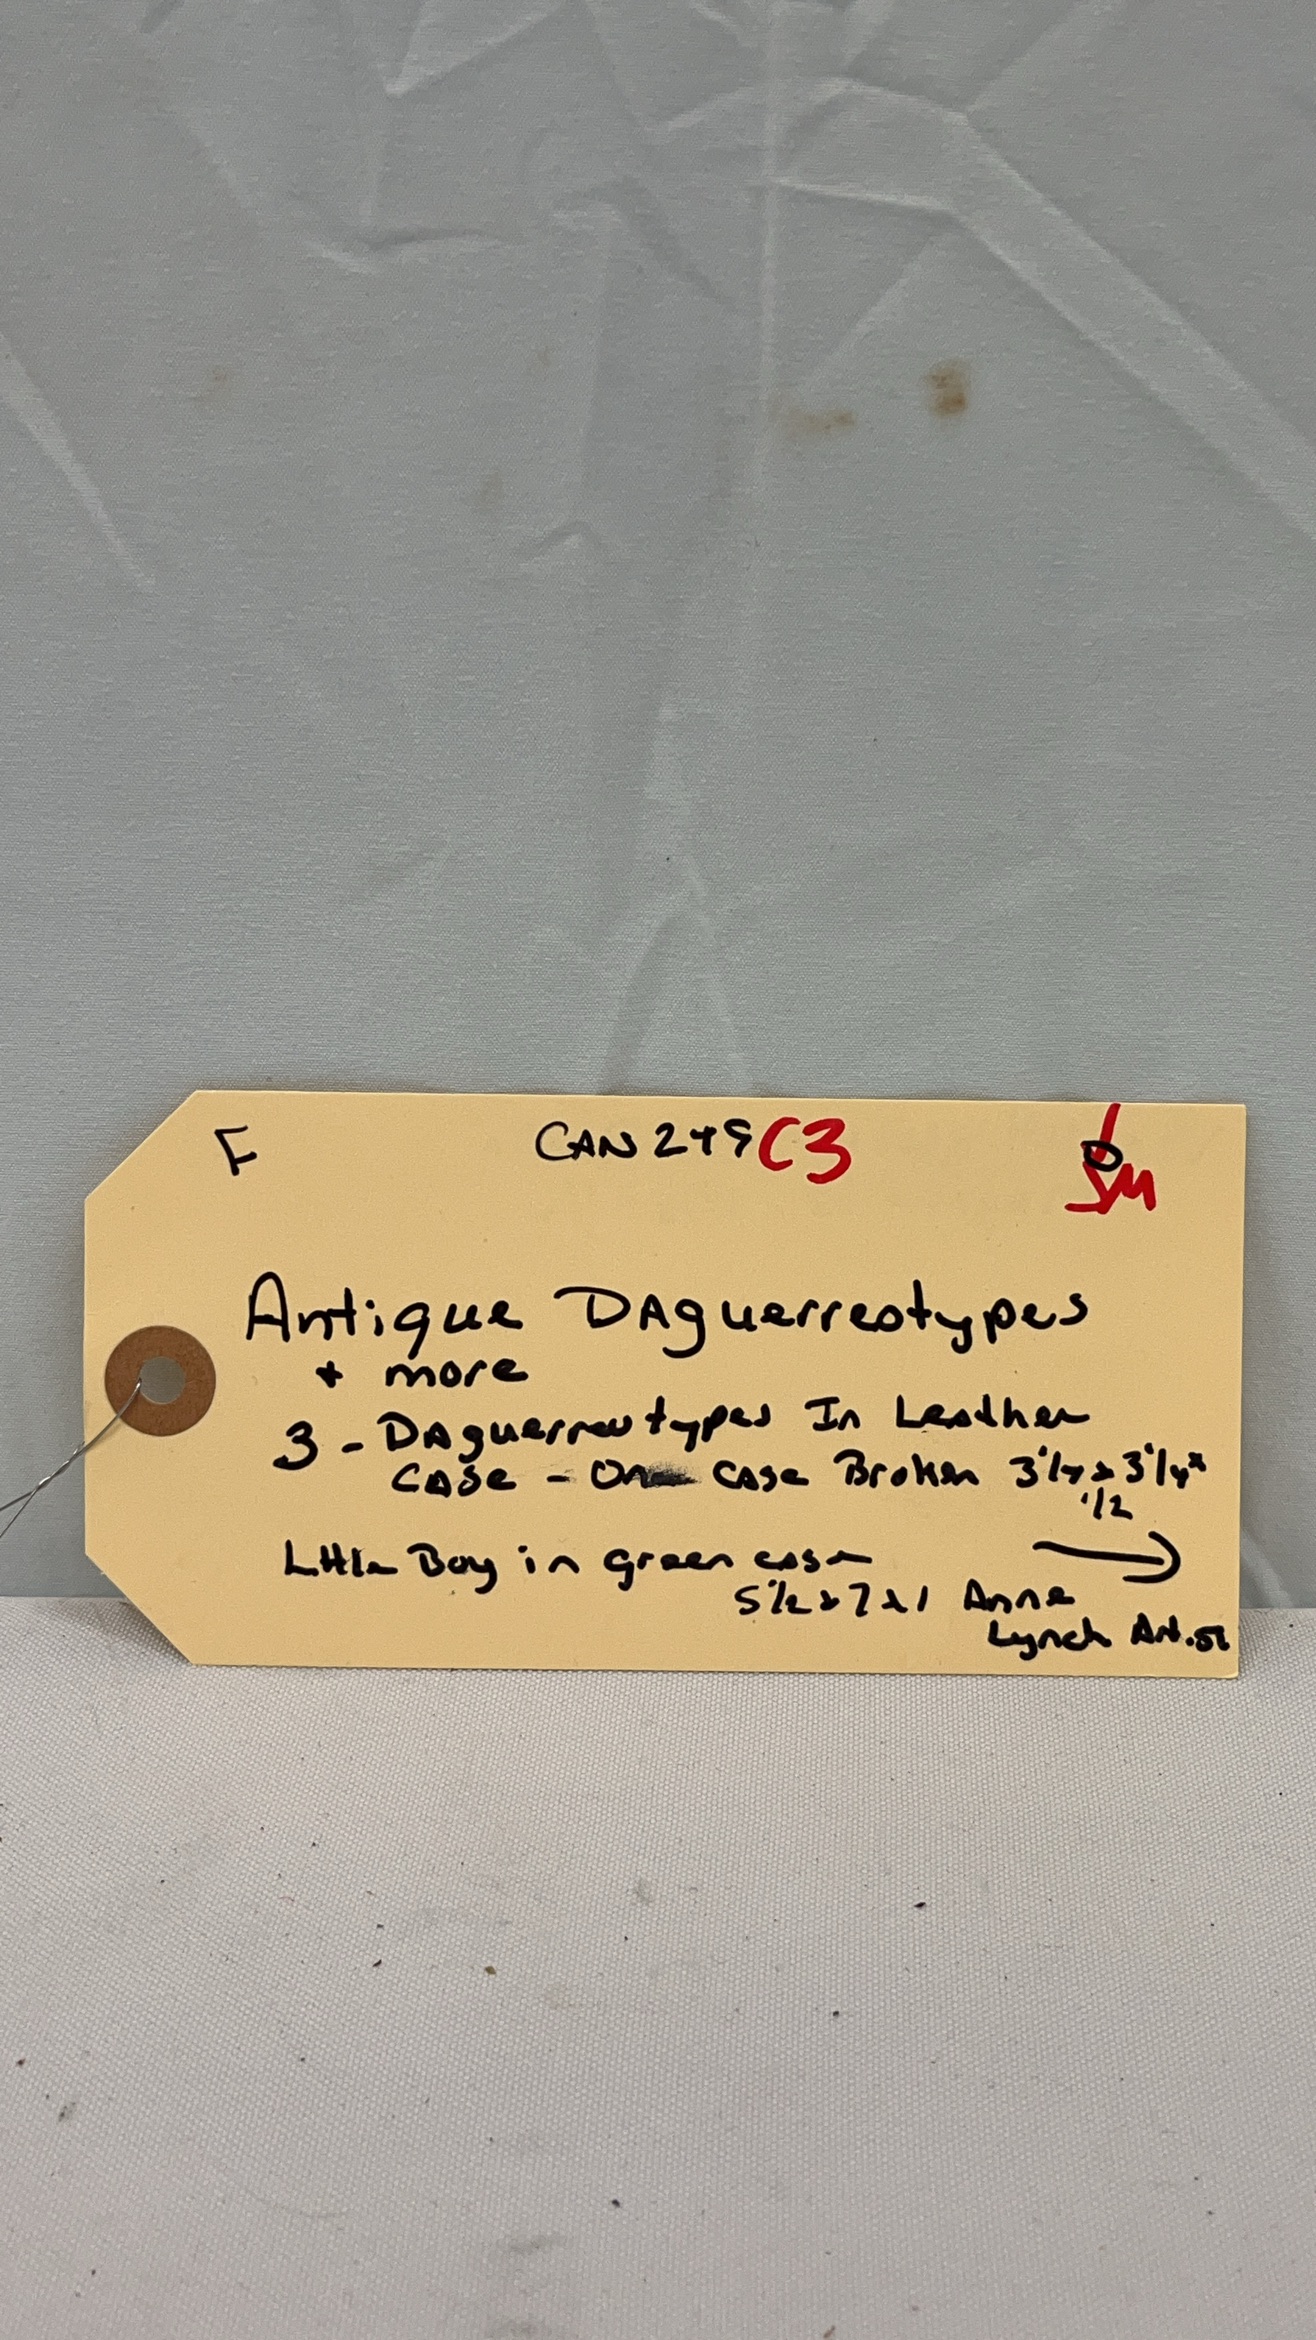 F CAN 249 C3 SM
Antique DAguerreotypes
+ more
3 - DAguerreotypes In Leather
CASE - One CASE Broken 3 1/4 x 3 1/4 x
1/2
Little Boy in green case
5 1/2 x 7 x 1 Anne
Lynch Artist